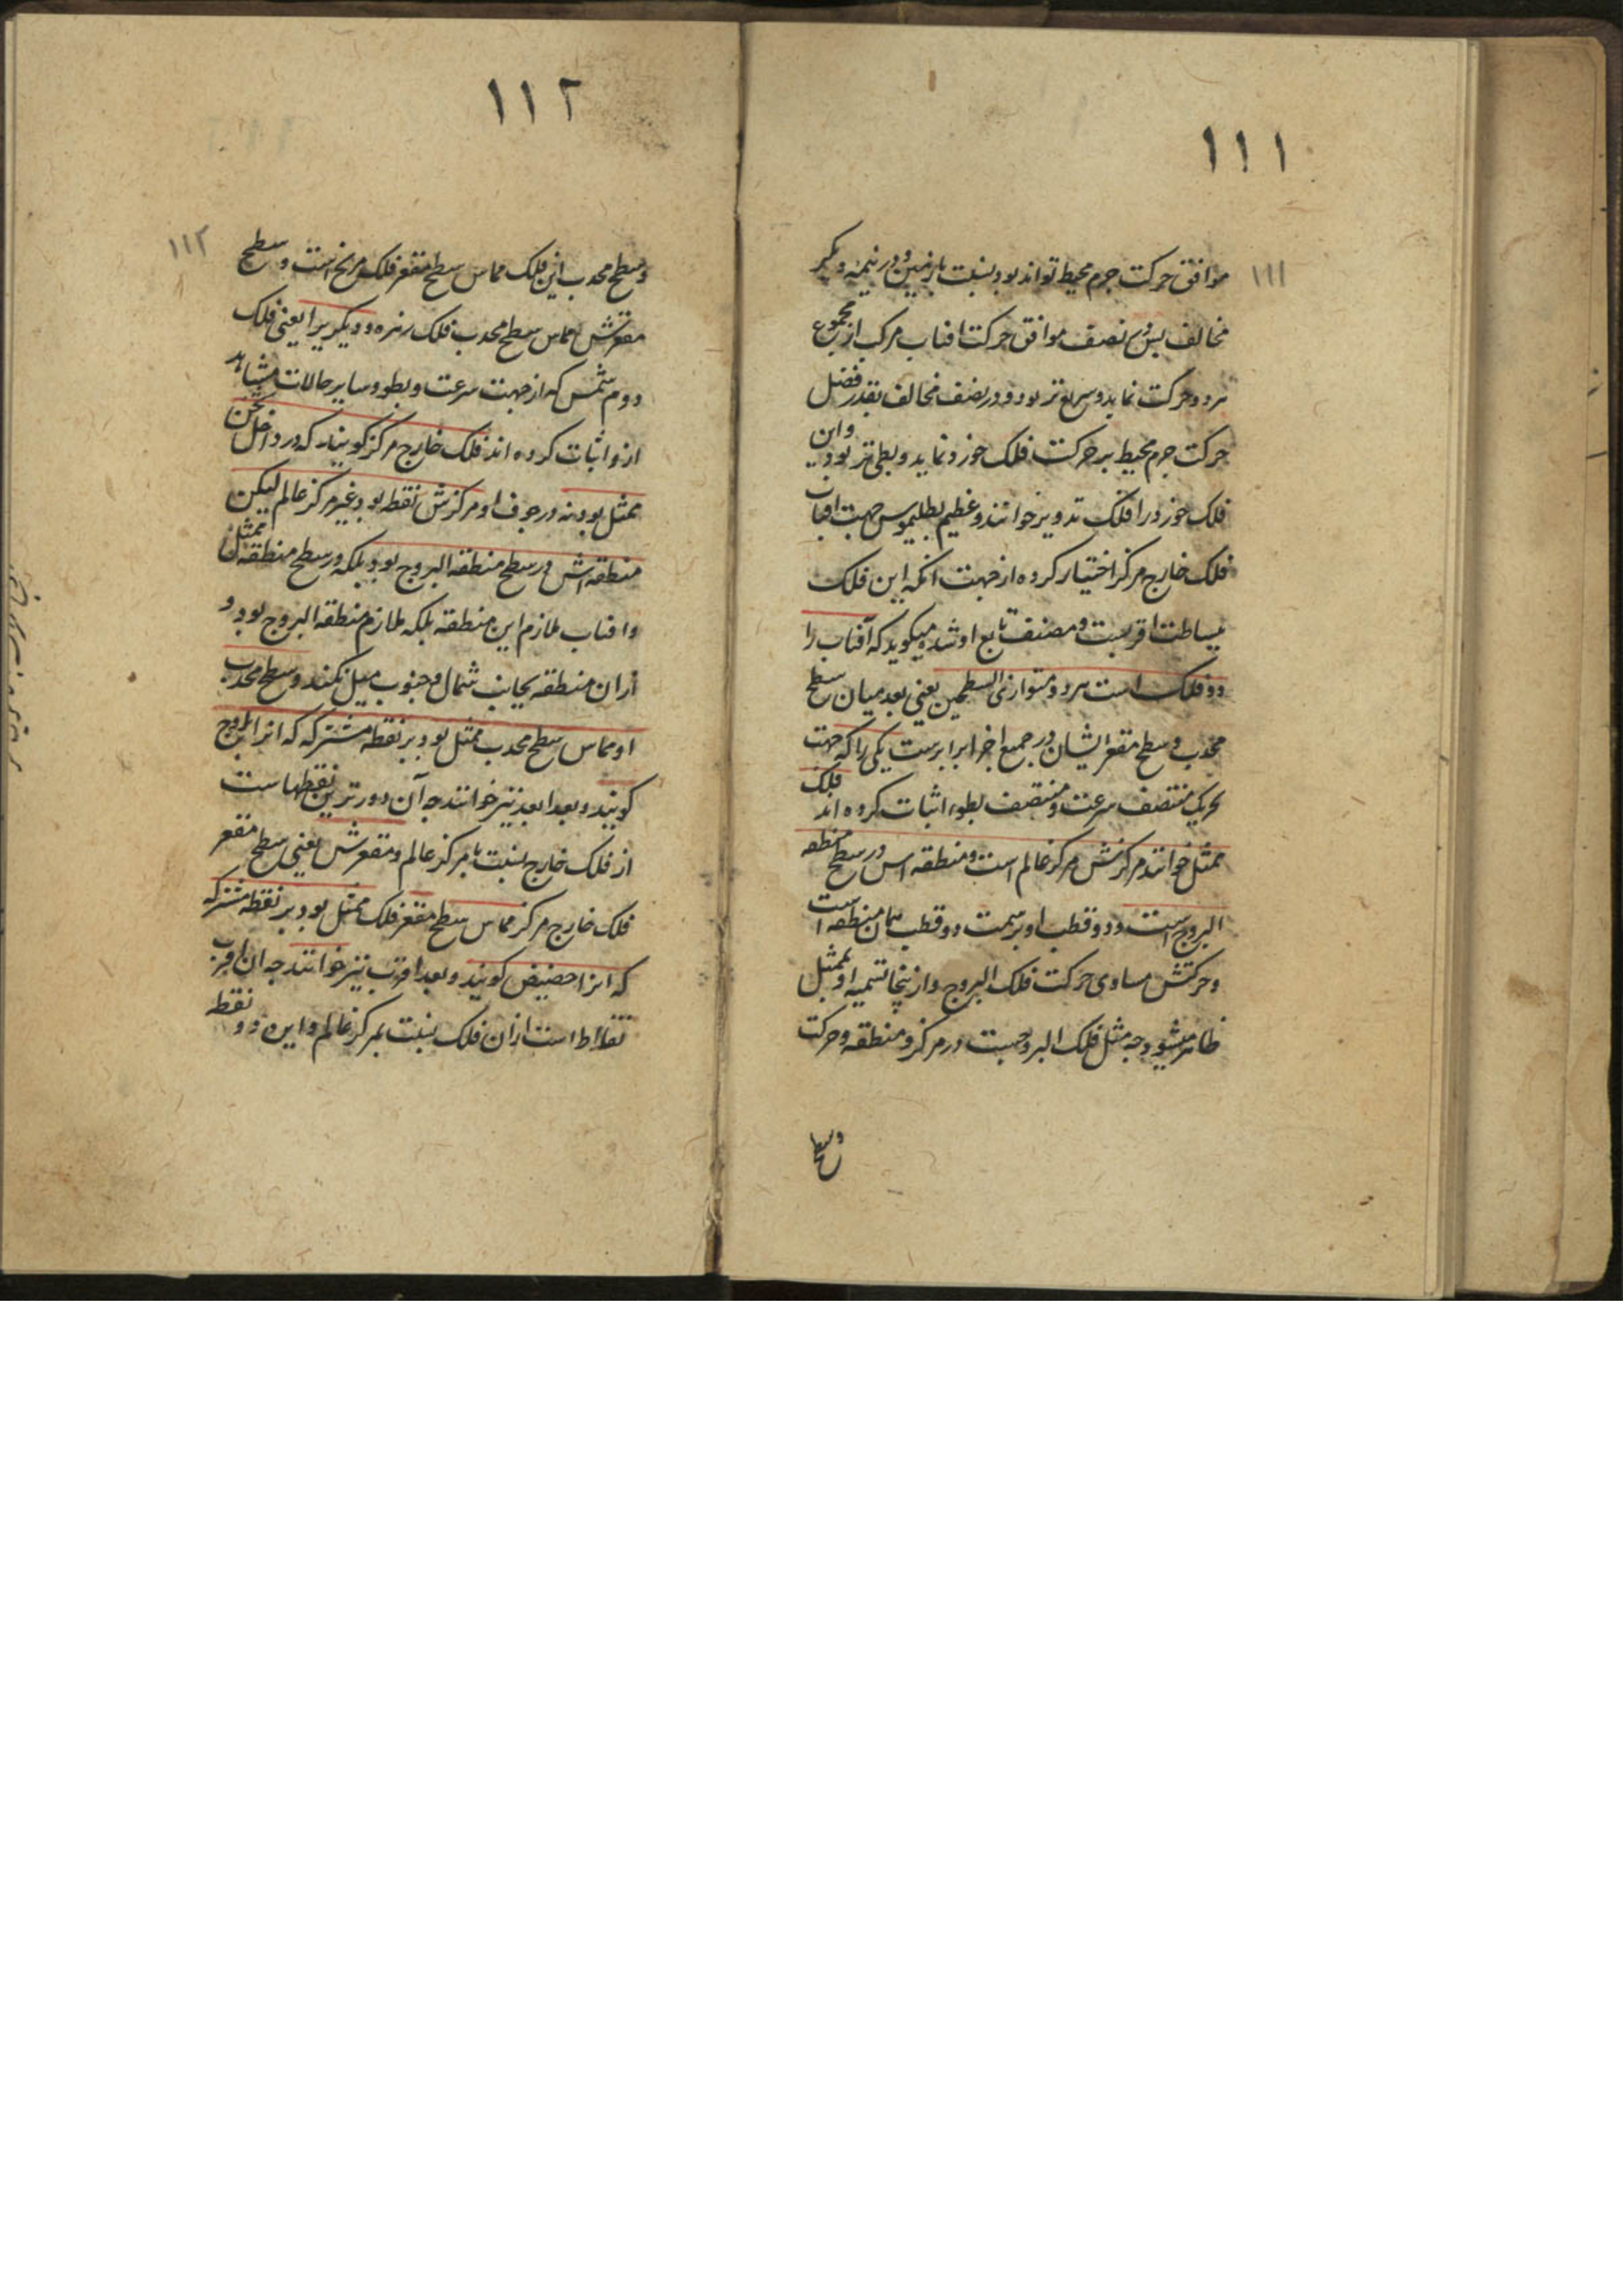 ١١١
١١١
موافق حرکت جرم محیط تواند بود بنسبت بازمین و در نیمه دیگر
مخالف پس در نصف موافق حرکت افتاب مرکب از مجموع
هر دو حرکت نماید و سریع‌تر بود و در نصف مخالف بقدر فضل
حرکت جرم محیط بر حرکت فلک خورد نماید و بطی تر بود و این
فلک خورد را فلک تدویر خوانند و عظیم بطلیموس جهت افتاب
فلک خارج مرکز اختیار کرده از جهت انکه این فلک
ببساطت اقربست و مصنف تابع او شده میگوید که آفتاب را
دو فلک است هر دو متوازی السطحین یعنی بعد میان سطح
محدب و سطح مقعر ایشان در جمیع اجزا برابرست یکی را که جهت
تحریک منتصف سرعت و منتصف بطوء اثبات کرده اند فلک
ممثل خوانند مرکزش مرکز عالم است و منطقه اس در سطح منطقه
البروج است و دو قطب او بر سمت دو قطب همان منطقه است
و حرکتش مساوی حرکت فلک البروج و ازینجا تسمیه او بممثل
ظاهر میشود چه مثل فلک البروجست در مرکز و منطقه و حرکت
وسطح
١١٢
١١٢
و سطح محدب این فلک مماس سطح مقعر فلک مریخ است و سطح
مقعرش مماس سطح محدب فلک زهره و دیگریرا یعنی فلک
دوم شمس که از جهت سرعت و بطوء و سایر حالات مشاهد
ازو اثبات کرده اند فلک خارج مرکز گویند که در داخل ثخن
ممثل بود نه در جوف او مرکزش نقطه بود غیر مرکز عالم لیکن
منطقه اش در سطح منطقه البروج بود بلکه در سطح منطقه ممثل
و افتاب ملازم این منطقه بلکه ملازم منطقه البروج بود و
ازان منطقه بجانب شمال و جنوب میل نکند و سطح محدب
او مماس سطح محدب ممثل بود بر نقطه مشترکه که انرا اوج
گویند و بعد ابعد نیز خوانند چه آن دورترین نقطهاست
از فلک خارج بنسبت با مرکز عالم و مقعرش یعنی سطح مقعر
فلک خارج مرکز مماس سطح مقعر فلک ممثل بود بر نقطه مشترکه
که انرا حضیض گویند و بعد اقرب نیز خوانند چه ان اقرب
نقاط است ازان فلک بنسبت بمرکز عالم و این دو نقطه